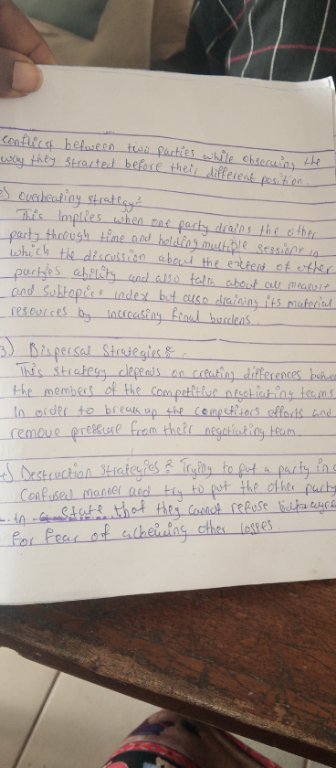 conflict between two parties while observing the
way they stracted before their different position.
c) Overheating strategy:
This implies when one party drains the other
party through time and holding multiple sessions in
which the discussion about the extent of other
party's ability and also talk about all measure
and subtopics index but also draining its material
resources by increasing final burdens.
Dispersal Strategies:
This strategy depends on creating differences between
the members of the competitive negotiating teams
In order to break up the competitors efforts and
remove pressure from their negotiating team.
Destruction Strategies: Trying to put a party in a
confused manner and try to put the other party
in state that they cannot refuse but
for fear of acheiving other losses